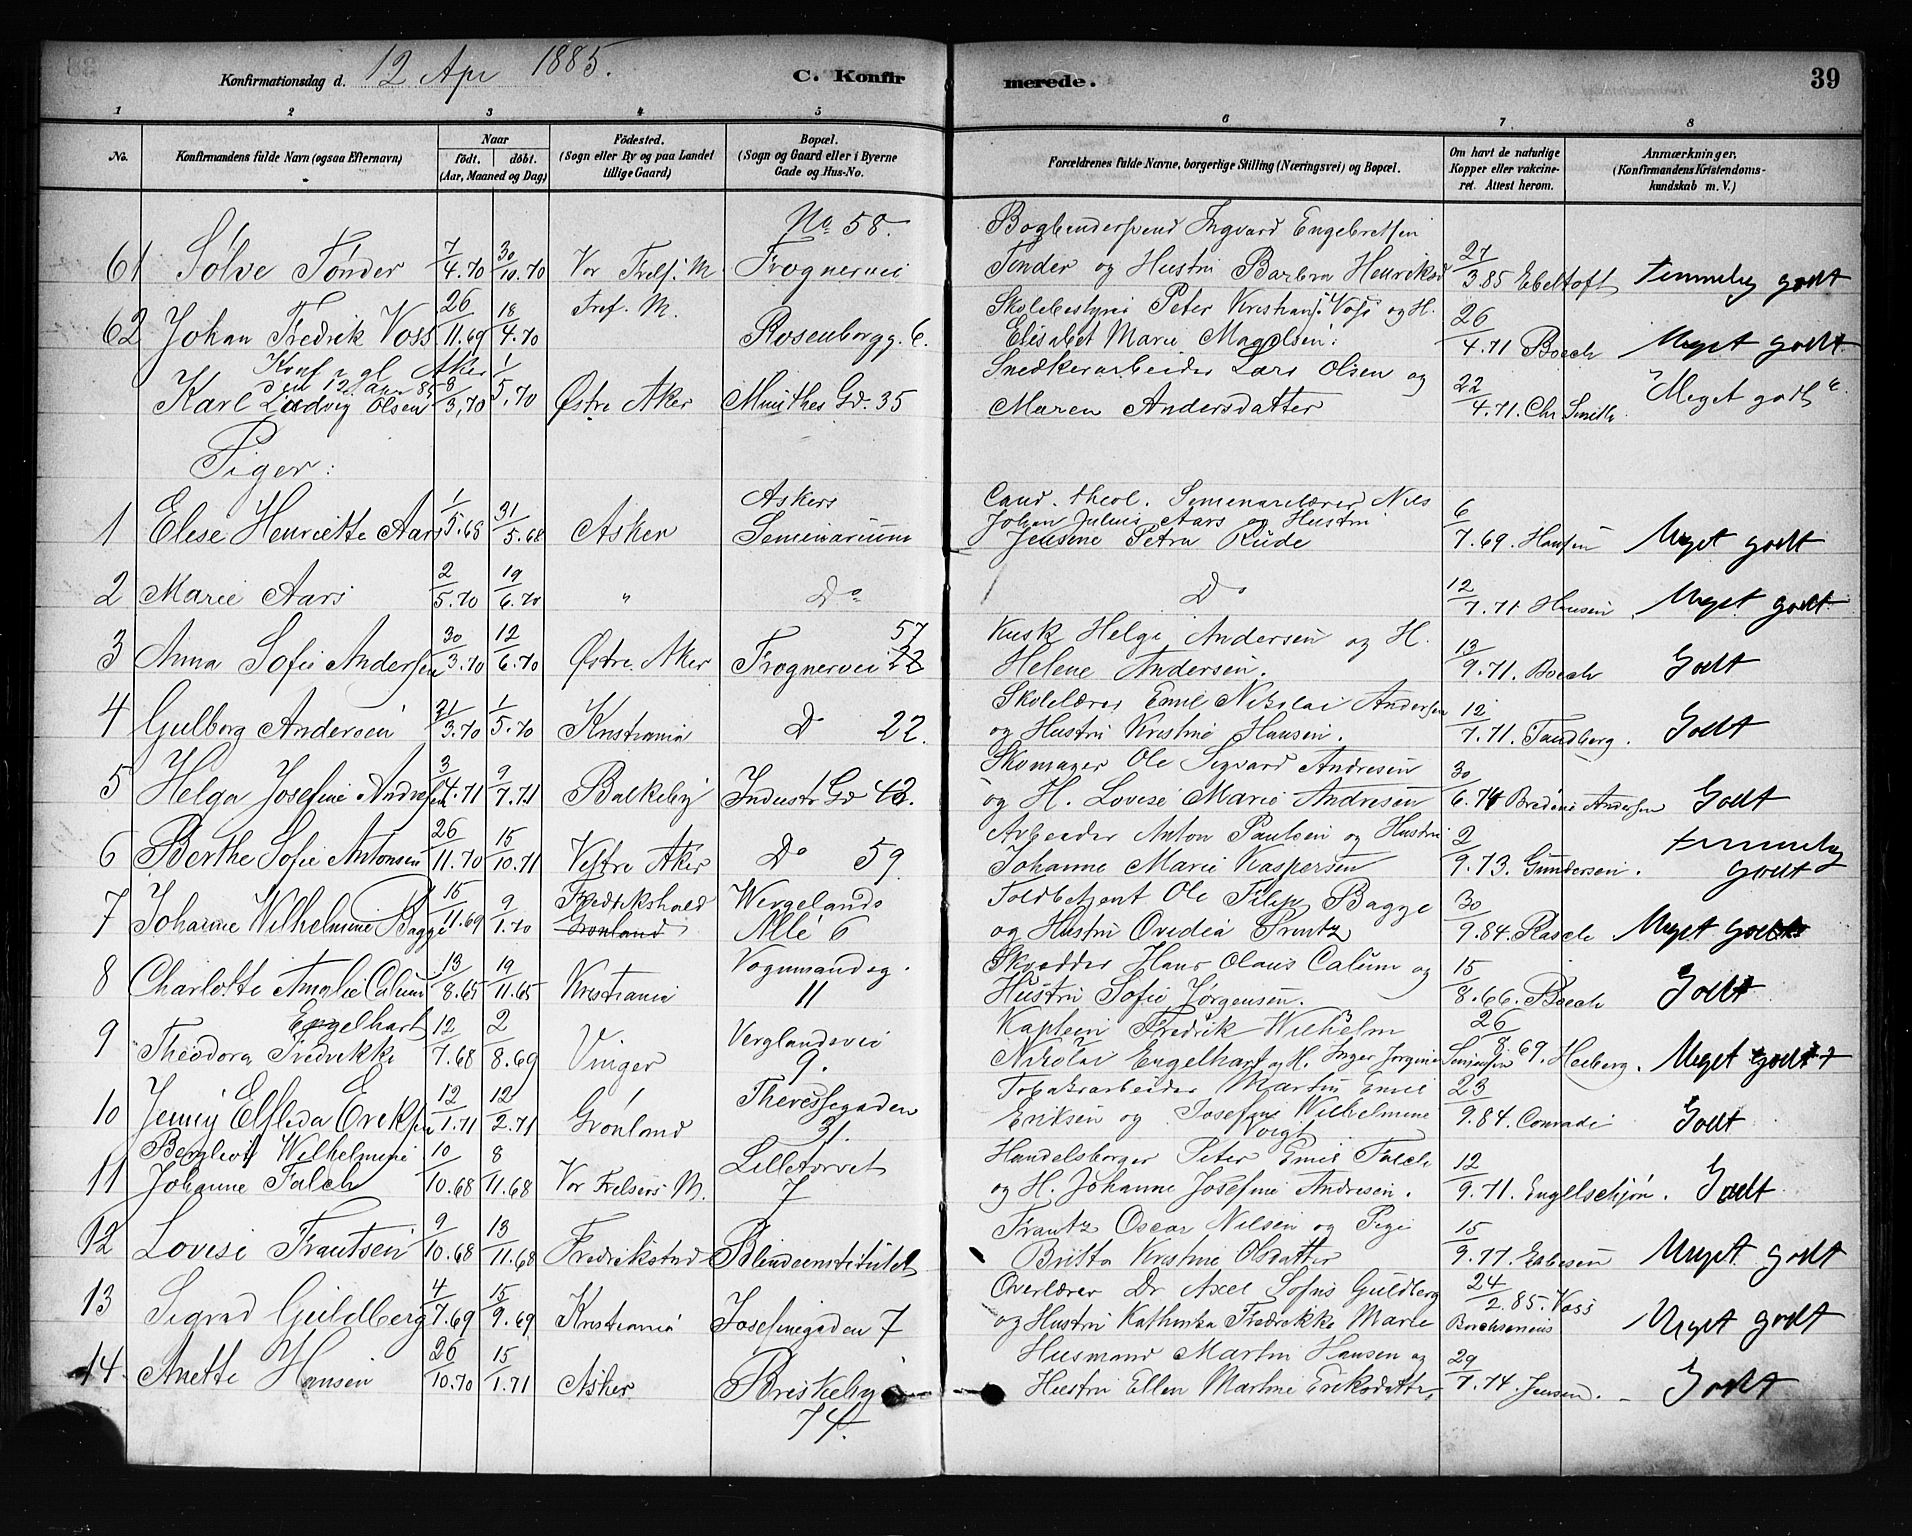 Konfirmationsdag d. 12 Apr 1885. C. Konfirmerede. 39
1 2 3 4 5 6 7 8
No. Konfirmandens fulde Navn (ogsaa Efternavn) Naar födt. döbt. (Aar, Maaned og Dag) Födested. (Sogn eller By og paa Landet tillige Gaard) Bopæl. (Sogn og Gaard eller i Byerne Gade og Hus-No. Forældrenes fulde Navne, borgerlige Stilling (Næringsvei) og Bopæl. Om havt de naturlige Kopper eller vakcineret. Attest herom. Anmærkninger. (Konfirmandens Kristendomskundskab m. V.)
No 58.
61 Sølve Tønder 7/4.70 30/10.70 Vor Frels. M. Frognervei Bogbindersvend Ingvard Engebretsen Tønder og Hustru Barbra Henriksd 27/3.85 Ebeltoft temmelig godt
62 Johan Fredrik Voss 26/11.69 18/4.70 Tref. M. Rosenborgg. 6. Skolebestyrer Peter Kristian Voss og H. Elisabet Marie Magelsen. 26/4.71 Boeck Meget godt
Konf. i gl Aker
den 12 Apr 85
Karl Ludvig Olsen 8/3.70 1/5.70 Østre Aker Munthes Gd. 35 Snedkerarbeider Lars Olsen og Maren Andersdatter 22/4.71. Chr Smith "Meget godt"
Piger:
1 Elise Henriette Aars 1/5.68 31/5.68 Asker Askers Seminarium Cand. theol. Seminarielærer Nils Johan Julius Aars og Hustru Jensine Petra Rude 6/7.69. Hansen Meget godt
2 Marie Aars 2/5.70 19/6.70 " Do Do 12/7.71 Hansen Meget godt
3 Anna Sofie Andersen 30/3.70 12/6.70 Østre Aker Frognervei 57 22 Kusk Helge Andersen og H. Helene Andersen. 13/9.71. Boeck Godt
4 Gulborg Andersen 21/3.70 1/5.70 Kristiania Do 22. Skolelærer Emil Nikolai Andersen og Hustru Kristine Hansen. 12/7.71. Tandberg. Godt
5 Helga Josefine Andresen 3/4.71 9/7.71 Balkeby Industr Gd 42. Skomager Ole Sigvard Andresen og H. Lovise Marie Andresen 30/6.74 Bredine Andersen Godt
6 Berthe Sofie Antonsen 26/11.70 15/10.71 Vestre Aker Do 59. Arbeider Anton Paulsen og Hustru Johanne Marie Kaspersen 2/9.73. Gundersen. temmelig godt
7 Johanne Wilhelmine Bagge 15/11.69 9/1.70 Fredrikshald Grønland Wergelands Allé 6 Toldbetjent Ole Filip Bagge og Hustru Ovedia Printz 30/9.84. Rasch Meget godt
8 Charlotte Amalie Calum 13/8.65 19/11.65 Kristiania Vognmandsg. 11 Skrædder Hans Olaus Calum og Hustru Sofie Jørgensen. 15/8.66. Boeck Godt
9 Theodora Fredrikke Engelhart 12/7.68 2/8.69 Vinger Verglandsvei 9. Kaptein Fredrik Wilhelm Nikolai Engelhart og H. Inger Jørgine Simensen 26/8.69. Heiberg. Meget godt
10 Jenny Elfleda Eriksen 12/1.71 12/2.71 Grønland Theressegaden 31. Tobaksarbeider Martin Emil Eriksen og Josefine Wilhelmine Voigt 23/9.84 Conradi Godt
11 Bergliot Wilhelmine Johanne Falch 10/10.68 8/11.68 Vor Frelsers M. Lilletorvet 7 Handelsborger Peter Emil Falch og H. Johanne Josefine Andresen. 12/9.71. Engelschjøn. Godt
12 Lovise Frantsen 9/10.68 13/11.68 Fredrikstad Blindeinstitutet Frantz Oscar Nilsen og Pige Britta Kristine Olsdatter 15/9.77. Esbesen Meget godt
13 Sigrid Guldberg 4/7.69 15/9.69 Kristiania Josefinegaden 7 Overlærer Dr Axel Sofus Guldberg og Hustru Kathinka Fredrikke Marie Borchsenius 24/2.85. Voss Meget godt
14. Anette Hansen 26/10.70 15/1.71 Asker Briskeby 74. Husmand Martin Hansen og Hustru Ellen Martine Eriksdatter 29/7.74. Jensen. Godt